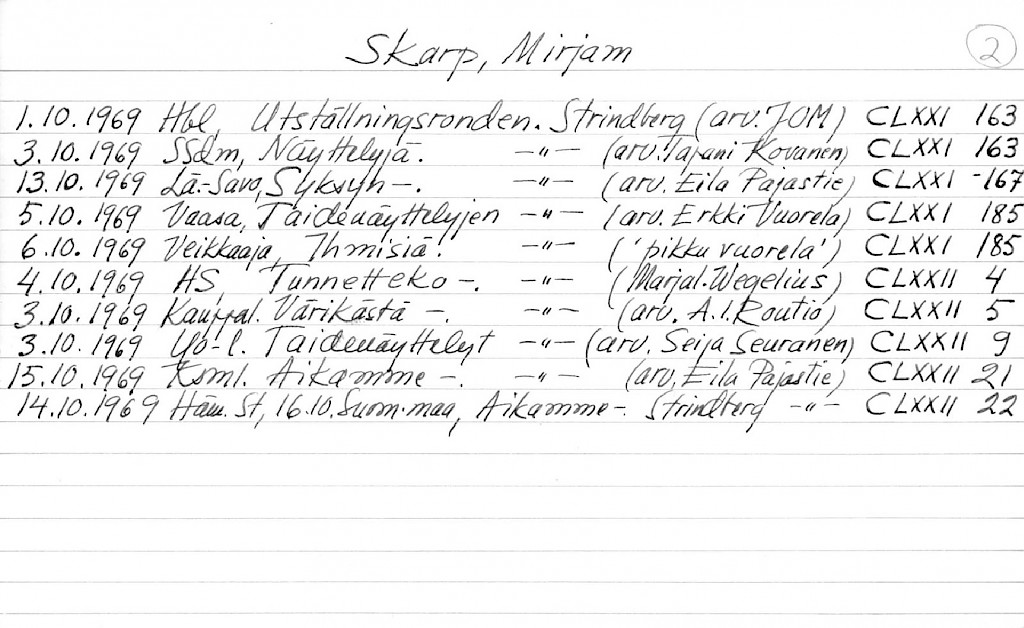 Skarp, Mirjam 2
1.10.1969 Hbl, Utställningsronden. Strindberg (arv. JOM) CLXXI 163
3.10.1969 SSdm, Näyttelyjä. -"- (arv. Tapani Kovanen) CLXXI 163
13.10.1969 Lä.-Savo, Syksyn -. -"- (arv. Eila Pajastie) CLXXI -167
5.10.1969 Vaasa, Taidenäyttelyjen -"- (arv. Erkki Vuorela) CLXXI 185
6.10.1969 Veikkaaja, Ihmisiä. -"- ('pikku vuorela') CLXXI 185
4.10.1969 HS, Tunnetteko -. -"- (Marjal.Wegelius) CLXXII 4
3.10.1969 Kauppal. Värikästä -. -"- (arv. A.I.Routio) CLXXII 5
3.10.1969 Yö-l. Taidenäyttelyt -"- (arv. Seija Seuranen) CLXXII 9
15.10.1969 Ksml. Aikamme -. -"- (arv. Eila Pajastie) CLXXII 21
14.10.1969 Häm. St, 16.10. Suom.maa, Aikamme -. Strindberg -"- CLXXII 22